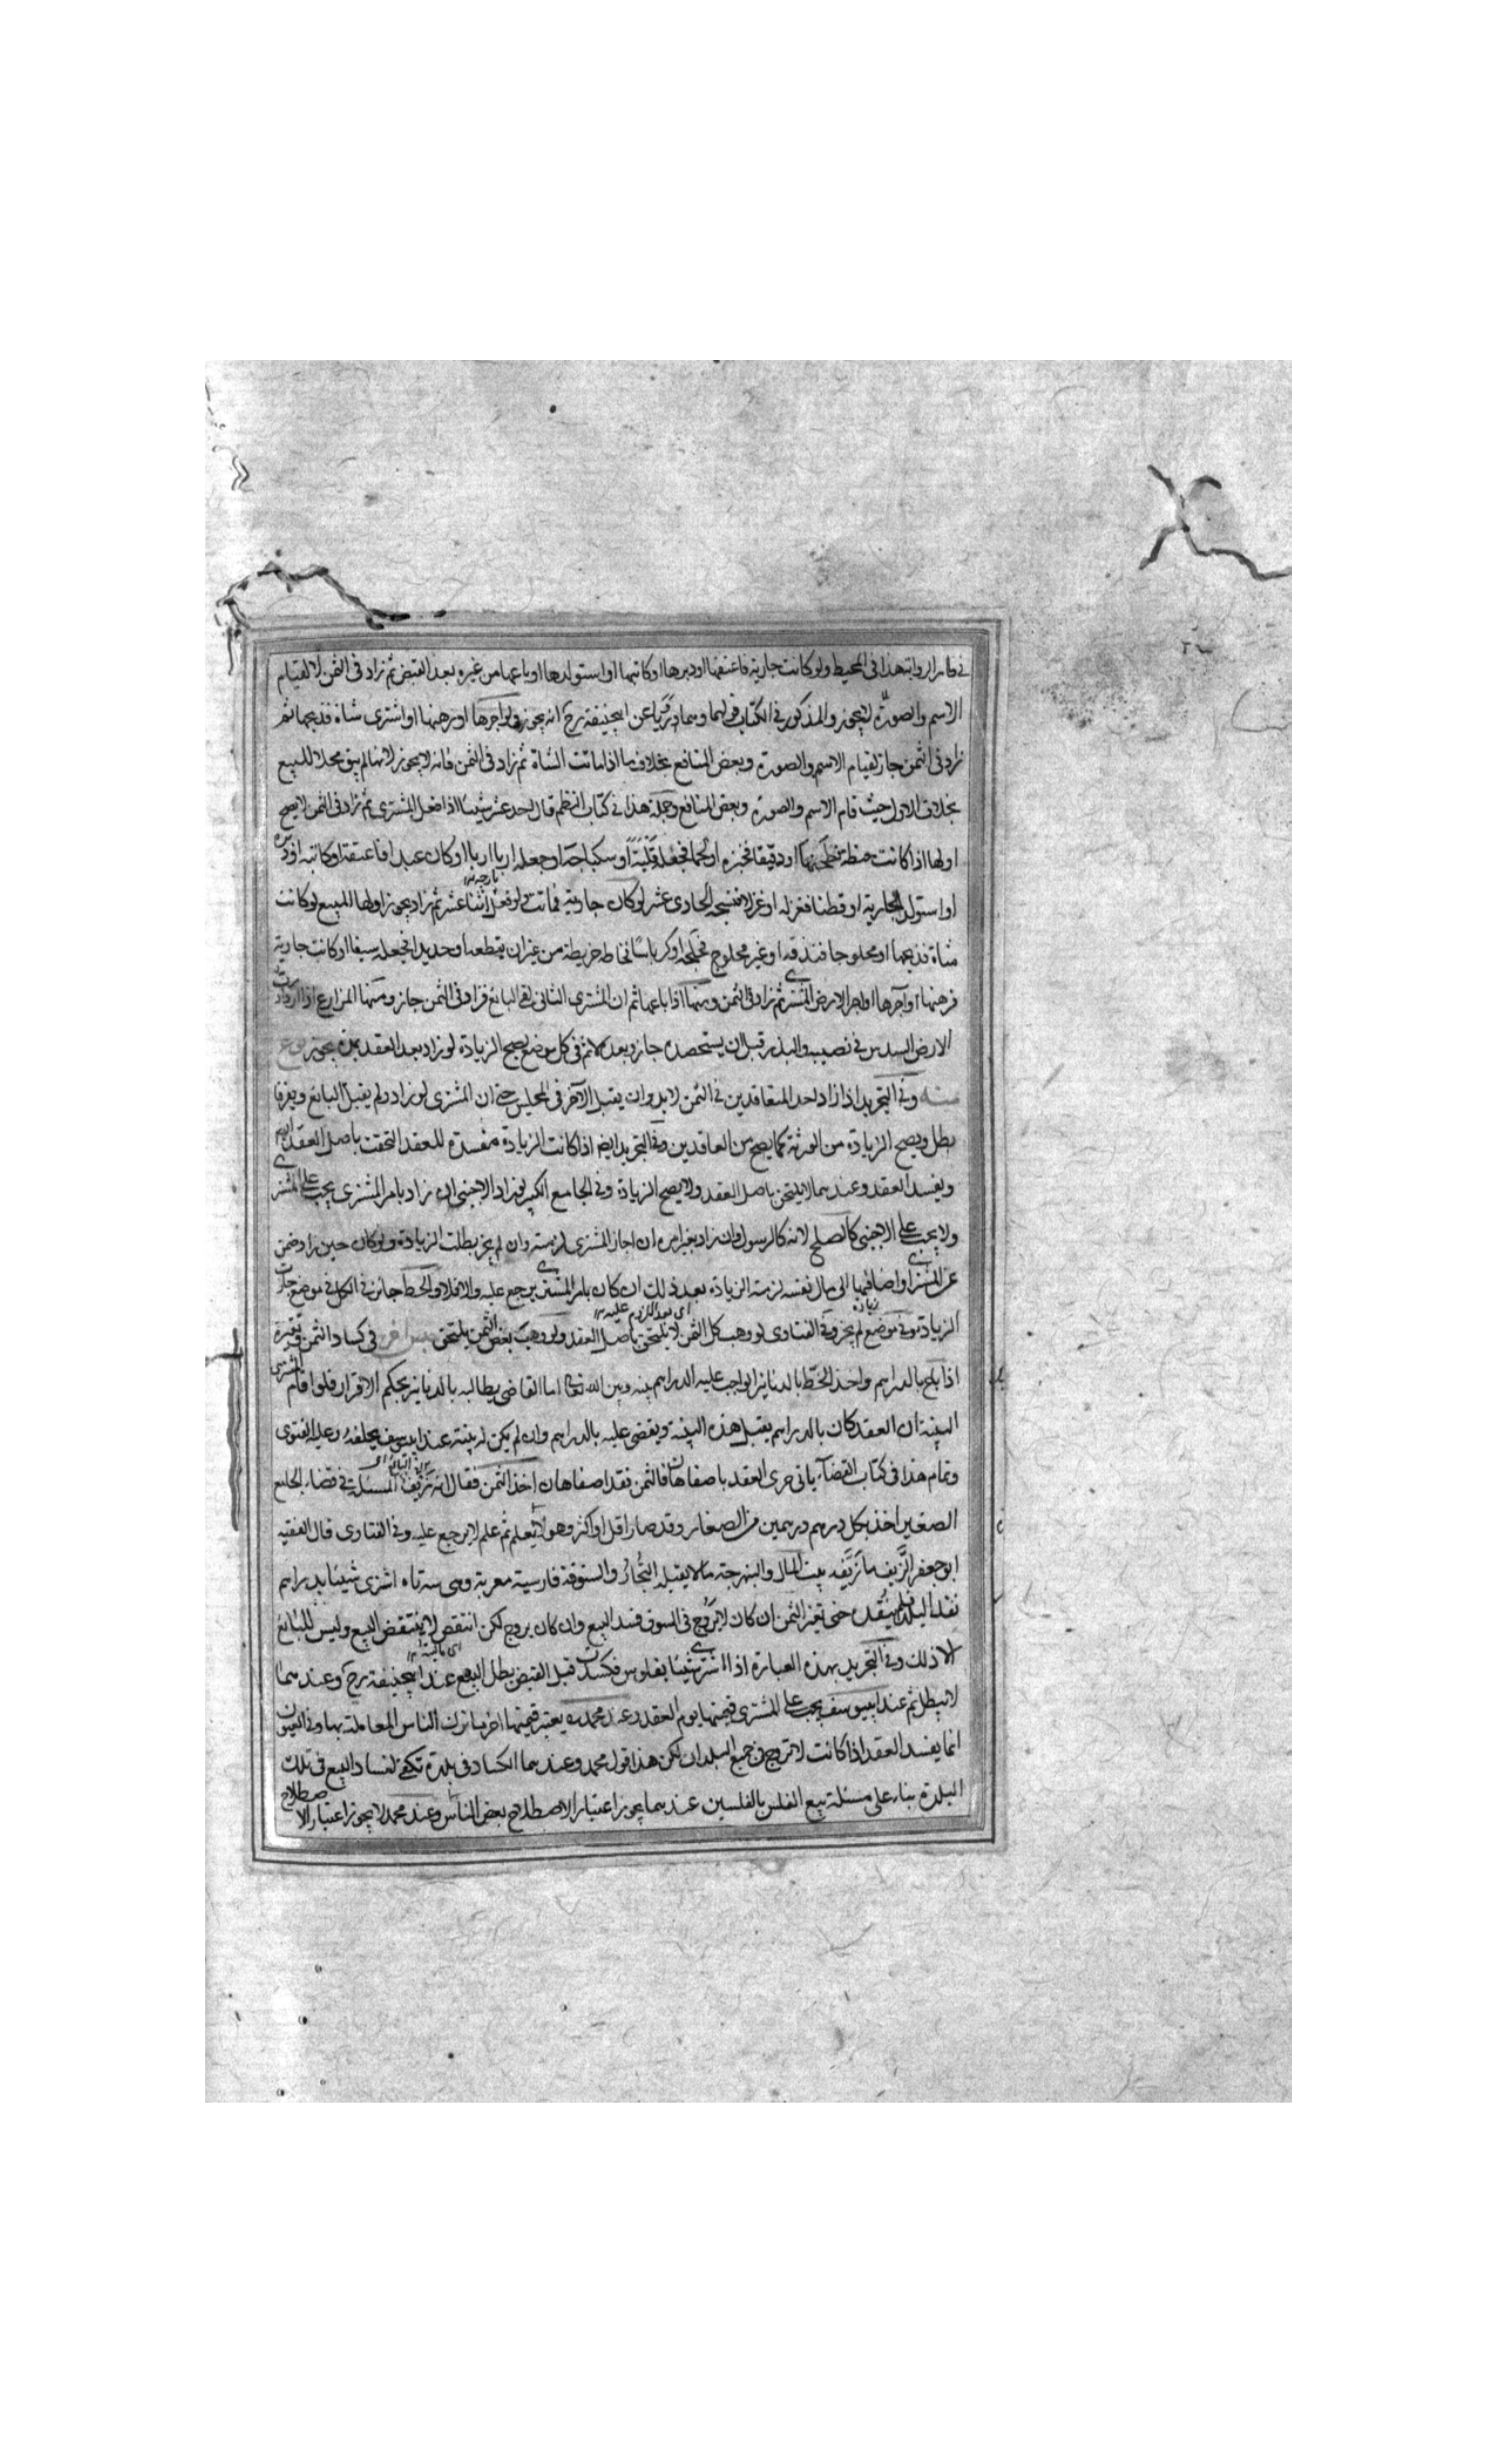 في ظاهر الرواية هذا في المحيط ولو كانت جارية فاعتقها او دبرها او كاتبها او استولدها او باعها من غيره بعد القبض ثم زاد في الثمن لا لقيام
الاسم والصورة لايجوز والمذكور في الكتاب قولهما وما روينا عن ابيحنيفة رح انه يجوز ولو اجرها او رهنها او اشترى شاة فذبحها ثم
زاد في الثمن جاز لقيام الاسم والصورة وبعض المنافع بخلاف ما اذا ماتت الشاة ثم زاد في الثمن فانه لايجوز لانها لم يبق محلا للبيع
بخلاف الاول حيث قام الاسم والصورة وبعض المنافع وجملة هذا في كتاب النظم قال احد عشر شيئا اذا فعل المشترى ثم زاد في الثمن لا يصح
اولها اذا كانت حنطة فطحنها او دقيقا فخبزه او لحما فجعله قلية او سكباجة او جعله اربا اربا او كان عبدا فاعتقه او كاتبه او دبره
او استولد الجارية او قطنا فغزله او غزلا فنسجه الحادى عشر لو كان جارية فماتت ولو فعل اثنا عشر ثم زاد يجوز اولها للمبيع لو كانت
شاة فذبحها او محلوجا فندفه او غير محلوج فحلجه او كرباسا فخاط خريطة من غير ان يقطعه او حديدا فجعله سيفا او كانت جارية
فرهنها او آجرها او اجر الارض المشترى ثم زاد في الثمن ومنها اذا باعها ثم ان المشترى الثانى لقى البائع فزاد في الثمن جاز ومنها المزارع اذا زاد رب
الارض السدس في نصيبه والبذر قبل ان يستحصده جاز وبعده لا ثم في كل موضع يصح الزيادة لو زاد بعد العقد بمدة يجوز نوع
منه وفي التجريد اذا زاد احد المتعاقدين في الثمن لابد وان يقبل الآخر في المجلس حتى ان المشترى لو زاد ولم يقبل البائع وتفرقا
بطل ويصح الزيادة من الورثة كما يصح من العاقدين وفي التجريد ايضا اذا كانت الزيادة مفسدة للعقد التحقت باصل العقد
ويفسد العقد وعندهما لا يلتحق باصل العقد ولا يصح الزيادة وفي الجامع الكبير لو زاد الاجنبى ان زاد بامر المشترى يجب على المشترى
ولا يجب على الاجنبى كالصلح لانه كالرسول وان زاد بغير امره ان اجاز المشترى لزمته وان لم يجز بطلت الزيادة ولو كان حين زاد ضمن
عن المشترى او اضافها الى مال نفسه لزمته الزيادة بعد ذلك ان كان بامر المشترى يرجع عليه والا فلا والحط جائز في الكل في موضع جازت
الزيادة وفي موضع لم يجز وفي الفتاوى لو وهب كل الثمن لا يلتحق باصل العقد ولو وهب بعض الثمن يلتحق في كساد الثمن وتغيره
اذا بلح بالدراهم واخذ الخط بالدنانير الواجب عليه الدراهم بينه وبين الله تعالى اما القاضى يطالبه بالدنانير بحكم الاقرار فلو اقام المشترى
البينة ان العقد كان بالدراهم يقبل هذه البينة ويقضى عليه بالدراهم وان لم يكن له بينة عند ابييوسف يحلفه وعليه الفتوى
وتمام هذا في كتاب القضاء ياتى جرى العقد باصفاهان فالثمن نقد اصفاهان اخذ الثمن فقال انه زيف المسئلة في قضاء الجامع
الصغير اخذ بكل درهم درهمين من الصغار وقد صار اقل او اكثر وهو لا يعلم ثم علم لا يرجع عليه وفي الفتاوى قال الفقيه
ابو جعفر الزيف ما زيفه بيت المال والبنهرجة ما لا يقبله التجار والستوقة فارسية معربة وهى سه تاه اشترى شيئا بدراهم
نقد البلد فلم ينقده حتى تغير الثمن ان كان لا يروج في السوق فسد البيع وان كان يروج لكن انتقص لا ينتقض البيع وليس للبائع
الا ذلك وفي التجريد بهذه العبارة اذا اشترى شيئا بفلوس فكسدت قبل القبض بطل البيع عند ابيحنيفة رح وعندهما
لا يبطل ثم عند ابييوسف يجب على المشترى قيمتها يوم العقد وعند محمد يعتبر قيمتها اخر ما ترك الناس المعاملة بها وفي العيون
انما يفسد العقد اذا كانت لا تروج في جميع البلدان لكن هذا قول محمد وعندهما الكساد في بلدة تكفى لفساد البيع في تلك
البلدة بناء على مسئلة بيع الفلس بالفلسين عندهما يجوز اعتبار الاصطلاح بعض الناس وعند محمد لا يجوز اعتبار الاصطلاح